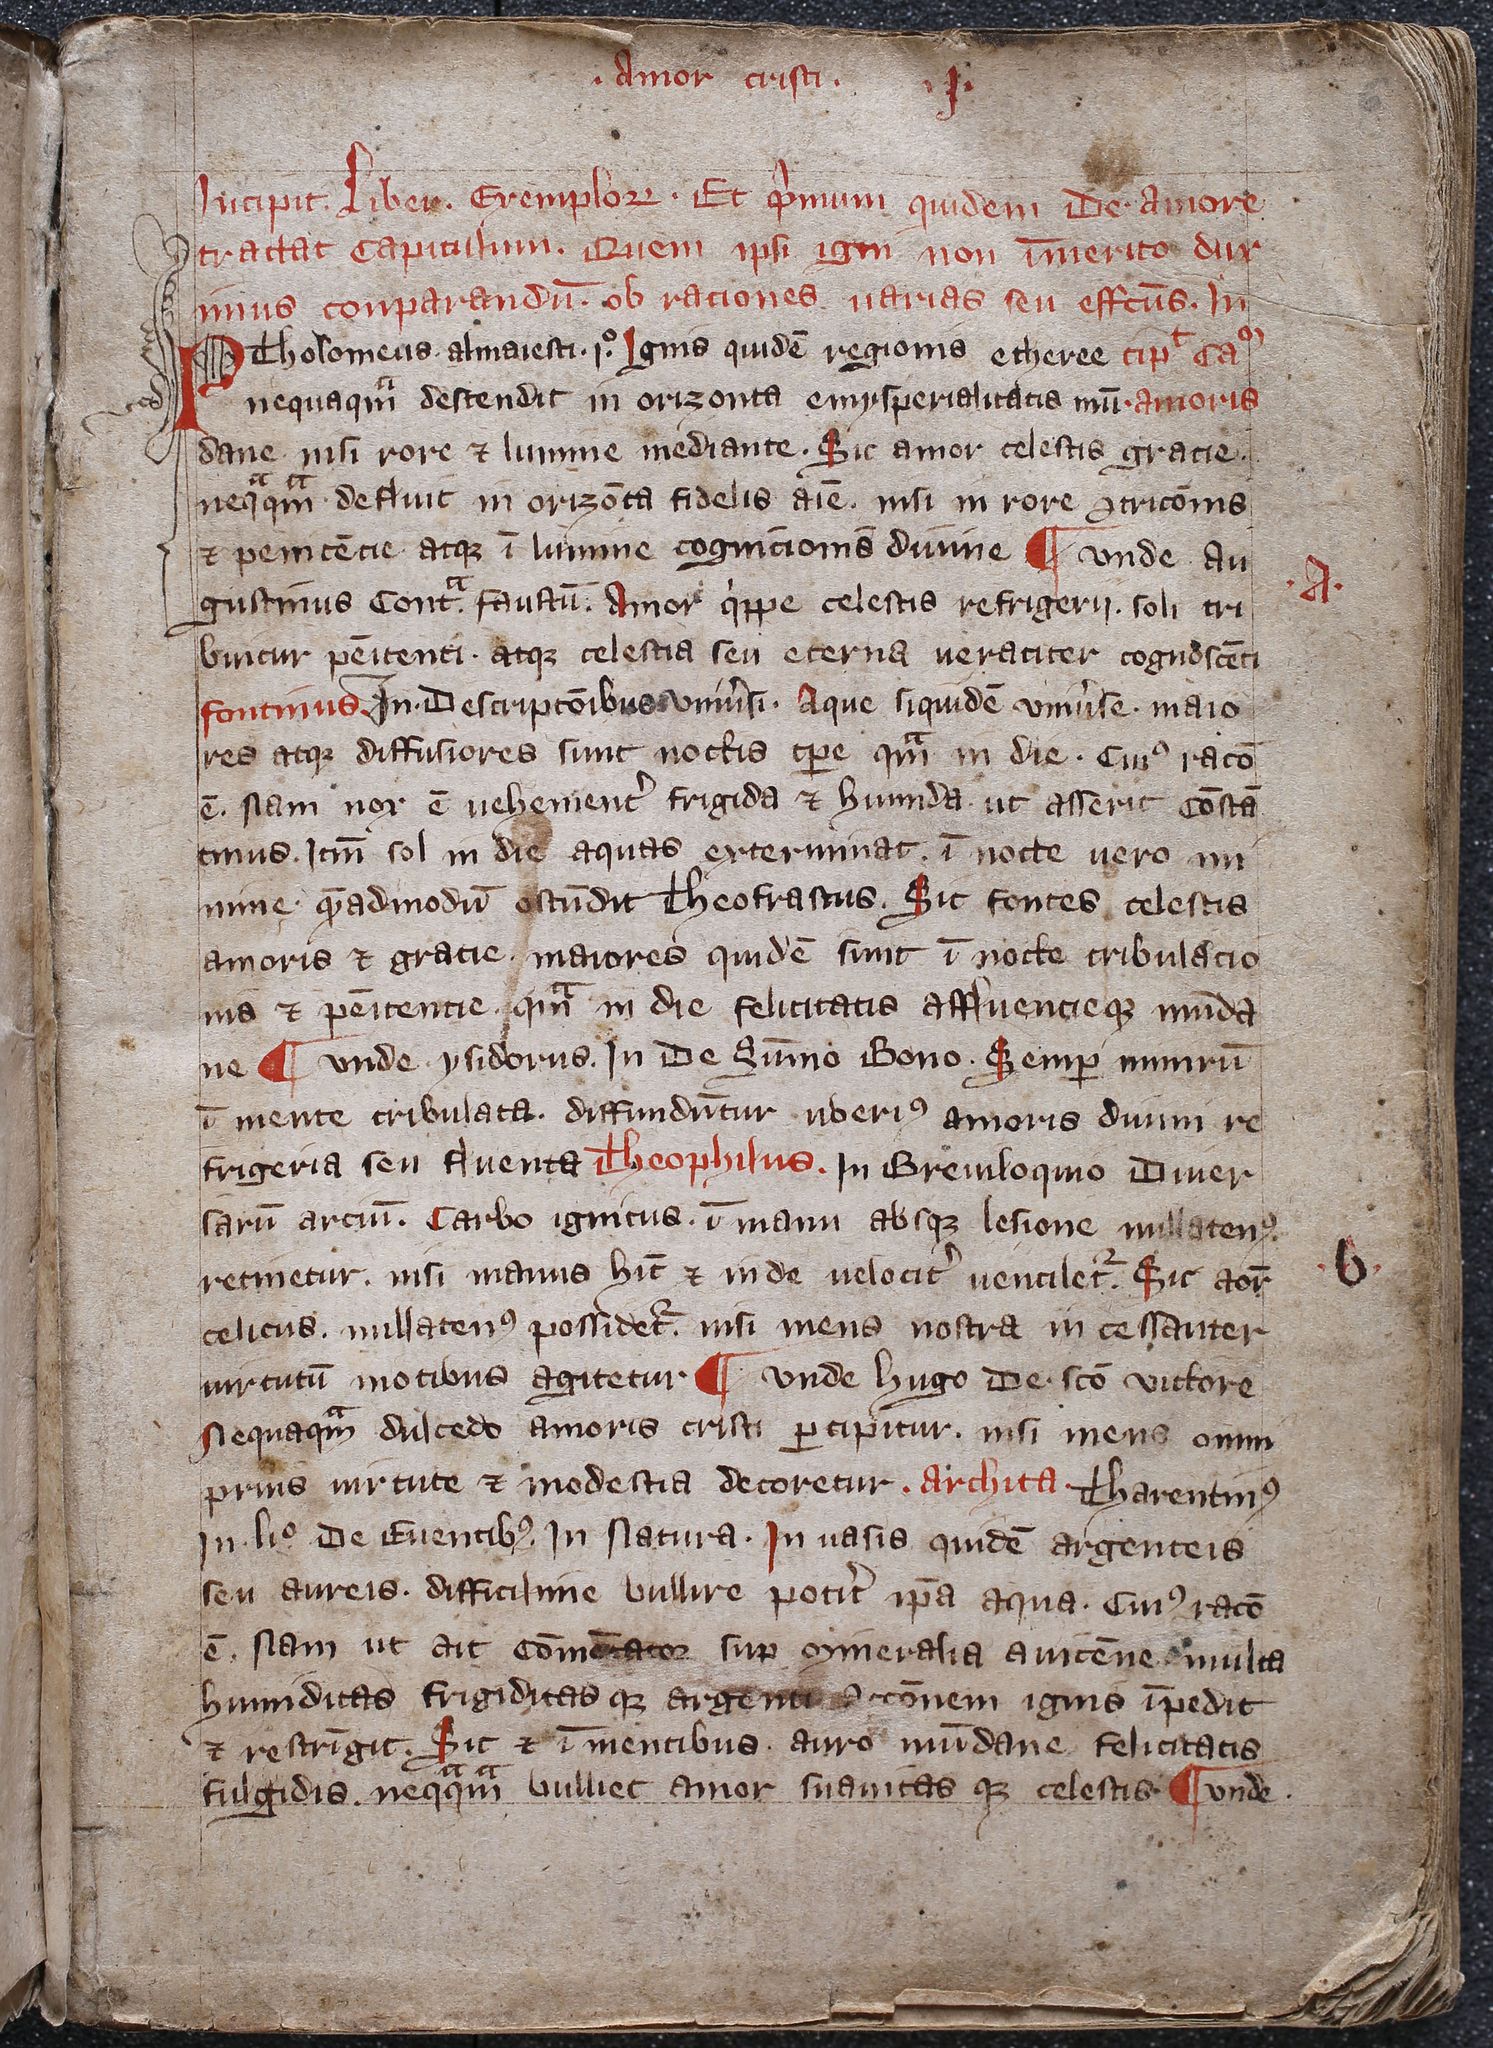 · Amor cristi · · I ·
Incipit. Liber. Exemploꝝ. Et p̍mum quidem De amore
tractat Capitulum. Quem ipsi igni non īmerito dux
imus conparandū· ob raciones uarias seu effcūs. In
PTholomeus· almaiesti· j°. Ignis quidē regionis etheree cipᵗ Caꝰ
nequaqᵃm descendit in orizonta emysperialitatis mū· amoris
dane nisi rore ⁊ lumine mediante. Sic amor celestis gracie·
neqᵃqᵃm defluit in orizōta fidelis aīe. nisi in rore ꝯtricōnis
⁊ penitēcie atqꝫ ī lumine cognicionis diuine ¶ vnde au
gustinus Contᵃ. faustū. Amor q̍ppe celestis refrigerij. soli tri
buitur pēitenti· atqꝫ celestia seu eterna ueraciter cognoscēti
fontinus In· Descriptōibus vniu̍si. Aque siquidē vniu̍se· maio
res atqꝫ diffusiores sunt noctis tp̄e qᵃm in die. Cuiꝰ racō
ē. Nam nox ē uehement̍ frigida ⁊ humida ut asserit Cōstā
tinus. Itm̄ sol in die aquas exterminat. ī nocte uero mi
nime· q̄admodū ostūdit theofrastus. Sic fontes celestis
amoris ⁊ gracie· maiores quidē sunt ī nocte tribulacio
nis ⁊ pēitencie qᵃm in die felicitatis affluencieqꝫ mūda
ne ¶ vnde ysidorus. In De Sūmo Bono. Semꝑ nimirū
ī mente tribulata. diffundūtur uberiꝰ amoris diuini re
frigeria seu fluenta Theophilus. In Breuiloquio Diuer
sarū arciū. Carbo ignitus. ī manu absqꝫ lesione nullatenꝰ
retinetur. nisi manus hīc ⁊ inde uelocit̍ uentilet᷑. Sic aōr
celicus. nullatenꝰ possidet᷑. nisi mens nostra in cessanter
uirtutū motibus agitetur ¶ vnde hugo De scō victore
Nequaqᵃm dulcedo amoris cristi ꝑcipitur. nisi mens omni
prius uirtute ⁊ modestia decoretur. Archita Tharentinꝰ
In· li° De Euentibꝰ. In Natura. In uasis quidē argenteis
seu aureis. difficilime bullire potit̍ ip̄a aqua. Cuiꝰ racō
ē. Nam ut ait Cōmētatoꝛ suꝑ Mineralia auicēne multa
humiditas frigiditas qꝫ argenti ignis īpedit
⁊ restrīgit. Sic ⁊ ī mentibus auro mūdane felicitatis
fulgidis. neqᵃqᵃm bulliet amor suauitas qꝫ celestis· ¶ vnde·
· A ·
· b ·